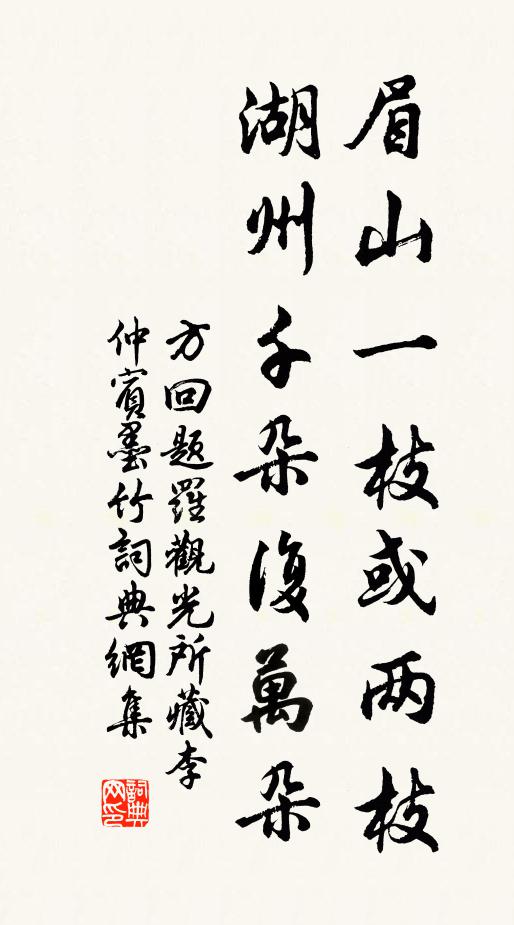 眉山一枝或两枝
湖州千朵復萬朵
方回題羅觀光所藏李
仲賓墨竹詞典網集
詞典
网印